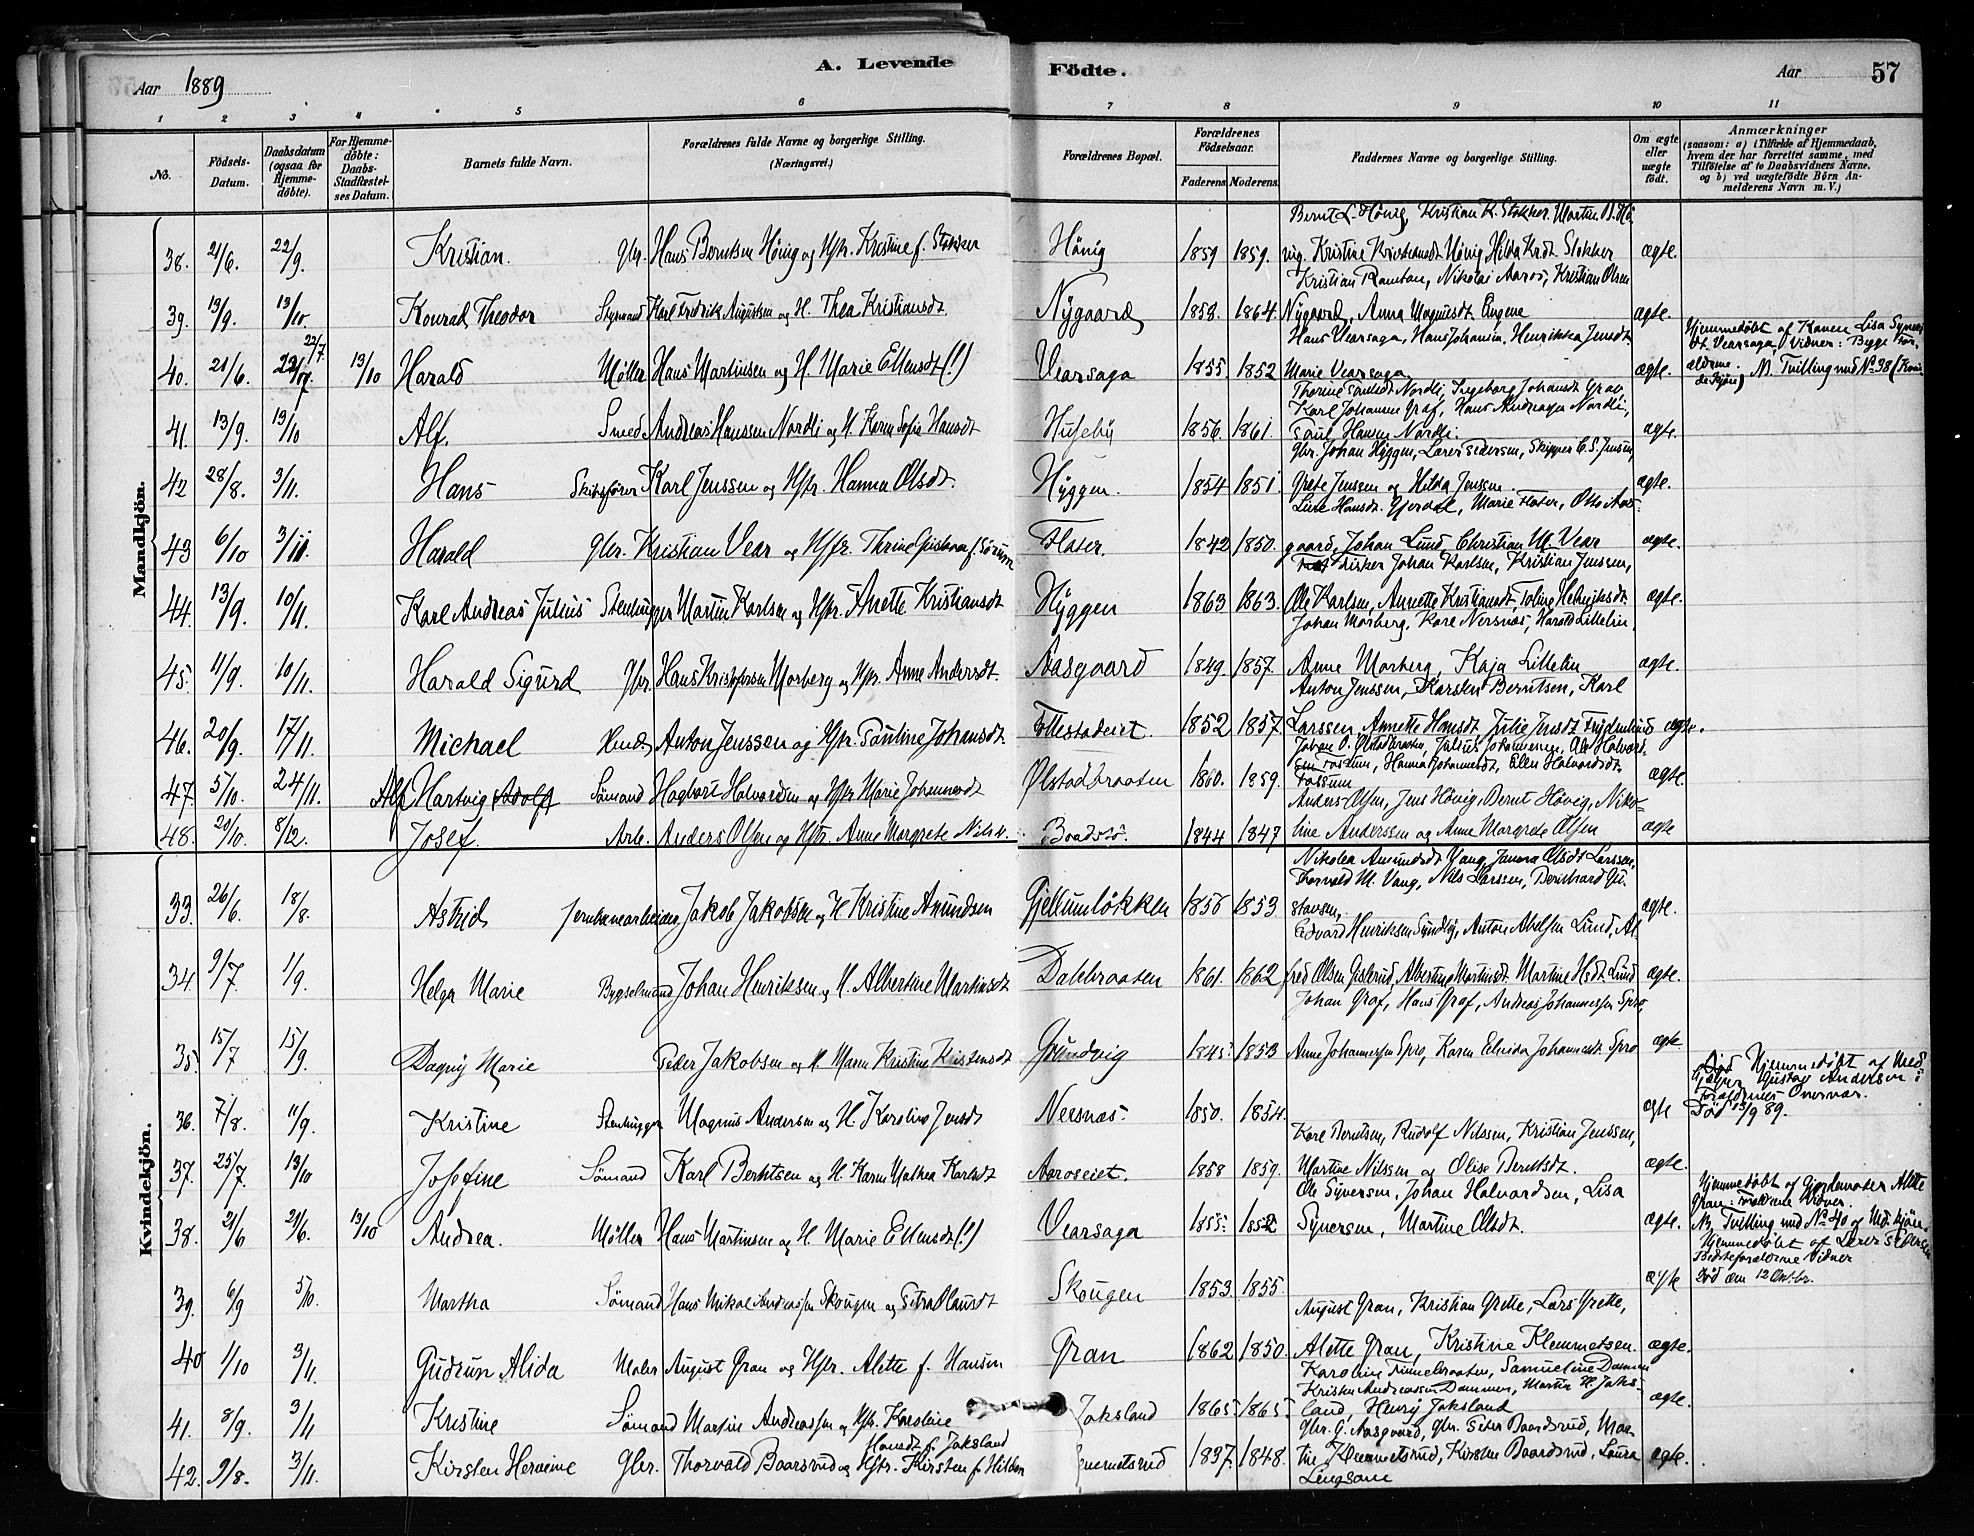 Aar 1889 A. Levende Födte. Aar 57
1 2 3 4 5 6 7 8 9 10 11
No. Födsels-Datum. Daabsdatum (ogsaa for Hjemme-döbte). For Hjemme-döbte: Daabs-Stadfæstel-ses Datum. Barnets fulde Navn. Forældrenes fulde Navne og borgerlige Stilling. (Næringsvei.) Forældrenes Bopæl. Forældrenes Födselsaar. Faderens. Moderens. Faddernes Navne og borgerlige Stilling. Om ægte eller uægte födt. Anmærkninger (saasom: a) i Tilfælde af Hjemmedaab, hvem der har forrettet samme, med Tilföielse af to Daabsvidners Navne. og b) ved uægtefödte Börn An-melderens Navn m. V.)
Mandkjön.
Bernt L. Hönig, Kristian K. Stokker. Martin B. Hö
38. 21/6. 22/9. Kristian. Gbr. Hans Berntsen Hönig og Hstr. Kristine f. Stokker Hönig 1859 1859. nig. Kristine Kristiansdt Hönig Hilda Krdt. Stokker ægte.
Kristian Ramton, Nikolai Aaros, Kristian Olsen
39. 19/9. 13/10. Konrad Theodor Styrmand Karl Fredrik Augustsen og H. Thea Kristiansdt Nÿgaard 1858. 1864. Nÿgaard, Anna Magnusdt Engene ægte.
Hans Vearsaga, Hans Johansen, Henrikka Jensdt. Hjemmedöbt af Konen Lisa
40. 21/6. 22/7. 13/10 Harald Möller Hans Martinsen og H. Marie Ellensdt (!) Vearsaga 1855. 1852 Marie Vearsaga ægte. N. Tvilling med No 38 (Kvin-dekjön)
Nordli, Ingeborg Johansdt Graf
Karl Johannes Graf, Hans Andreassen Nordli,
41. 13/9. 13/10 Alf. Smed Andreas Hanssen Nordli og H. Karen Sofie Hansdt Husebÿ 1856. 1861. Paul Hansen Nordli. ægte.
Gbr. Johan Hÿggen, Lærer Pedersen, Skipper C. S. Jensen,
42 28/8. 3/11. Hans Skibsförer Karl Jenssen og Hstr. Hanna Olsdt. Hÿggen. 1854 1851. Grete Jenssen og Hilda Jenssen. ægte.
Lise Hansdt. Gjerdal, Marie Flater, Otto Aas-
43 6/10 3/11. Harald Gbr. Kristian Vear og Hstr. Thrine f. Sörum Flater. 1842 1850. gaard, Johan Lund Christian M. Vear ægte.
Fisker Johan Karlsen, Kristian Jenssen,
44. 13/9. 10/11. Karl Andreas Julius Stenhugger Martin Karlsen og Hstr. Anette Kristiansdt Hÿggen 1863 1863. Ole Karlsen, Annette Kristiansdt, Toline Helviksdt. ægte.
Johan Morberg, Kare Nersnæs, Harald Littelin.
45. 11/9. 10/11. Harald Sigurd Gbr. Hans Kristofersen Morberg og Hstr. Anne Andersdt. Aasgaard 1849. 1857. Anne Morberg, Kaja Littelin ægte.
Anton Jenssen, Karsten Berntsen, Karl
46. 20/9. 17/11. Michael Anton Jenssen og Hstr. Pauline Johansdt. Follestadeiet. 1852 1857. Larssen, Annette Hansdt, Julie Jensdt ægte.
Johan O. Ölstadbraaten, Julius Johannessen, Ole Halvord-
sen Fossum, Hanna Johannesdt, Ellen Halvordsdt.
47. 5/10. 24/11. Alf Hartvig Adolf Sömand Hagbart Halvordsen og Hstr Marie Johannesdt Ölstadbraaten 1860. 1859. Fossum ægte.
Anders Olsen, Jens Hövig, Bernt Hövig, Niko-
48. 20/10. 8/12. Josef. Arb. Anders Olsen og Hstr. Anne Margrete Nilsd. 1844 1847 line Anderssen og Anne Margrete Olsen ægte
Kvindekjön.
Nikolea Amundsdt Vang, Janna Olsdt Larssen,
Thorvald M. Vang, Nils Larssen, Bernhard Gu-
33. 26/6. 18/8. Astrid Jernbanearbeider Jakob Jakobsen og H Kristine Amundsen Gjellumlökken 1856 1853 stavsen, ægte.
Edvard Henriksen Sundby, Anton Abelsen Lund, Al-
34 9/7. 1/9. Helga Marie Bygselmand Johan Henriksen og H. Albertine Martinsdt Dalebraaten 1861. 1862 fred Olsen Gislerud, Albertine Martinsdt. Martine Hsdt Lund ægte.
Johan Graf, Hans Graf, Andreas Johannessen Spro,
35. 15/7 15/9. Dagnÿ Marie Peder Jakobsen og H. Maren Kristine Kristensdt Grundvig 1845. 1853 Anne Johannessen Spro, Karen Johannesdt. Spro ægte
36. 7/8. 11/9. Kristine Stenhugger Magnus Andersen og H. Karoline Jensdt Nersnæs. 1850. 1854. ægte Hjemmedöbt af Gustav Andersen i Forældrenes Död 13/9 89.
Kare Berntsen, Rudolf Nilssen, Kristian Jenssen,
37. 25/7. 13/10 Josefine Sömand Karl Berntsen og H. Karen Mathea Karlsdt Aaroseiet. 1858 1859. Martine Nilssen og Olise Berntsdt. ægte.
Ole Syversen, Johan Halvordsen, Lisa Hjemmedöbt af Gjordemoder Alette Gran: Forældrene Vidner
38. 21/6 21/6. 13/10 Andrea. Möller Hans Martinsen og H. Marie Ellensdt (!) Vearsaga 1855. 1852 Syversen, Martine Olsdt. ægte. N. Tvilling med No 40 af Mdkjön.
39. 6/9 5/10. Martha Sömand Hans Mikal Andreassen Skougen og Petra Olausdt Skougen 1853. 1855. ægte Hjemmedöbt af Lærer Pedersen Bedsteforældrene Vidner Död den 12 Oktbr.
August Gran, Kristian Grette, Lars Grette,
40 1/10 3/11. Gudrun Alida Maler August Gran og Hstr. Alette f. Hansen Gran 1862 1850. Alette Gran, Kristine Klemmetsen. ægte.
Karoline Samueline Dammen
Kristen Andreassen Dammen, Martin H. Jaks-
41. 8/9. 3/11 Kristine Sömand Martin Andreassen og Hstr. Karoline Hansdt f. Jaksland Jaksland 1865 1865 land, Henrÿ Jaksland ægte.
Gbr. G. Aasgaard, Gbr. Peter Baardsrud, Mar-
42. 9/8. 3/11. Kirsten Hervine Gbr. Thorvald Baarsrud og Hstr. Kirsten f. Hilden 1837. 1848. tin Klemmetsrud, Kirstine Baardsrud, Laura ægte.
Lengsom